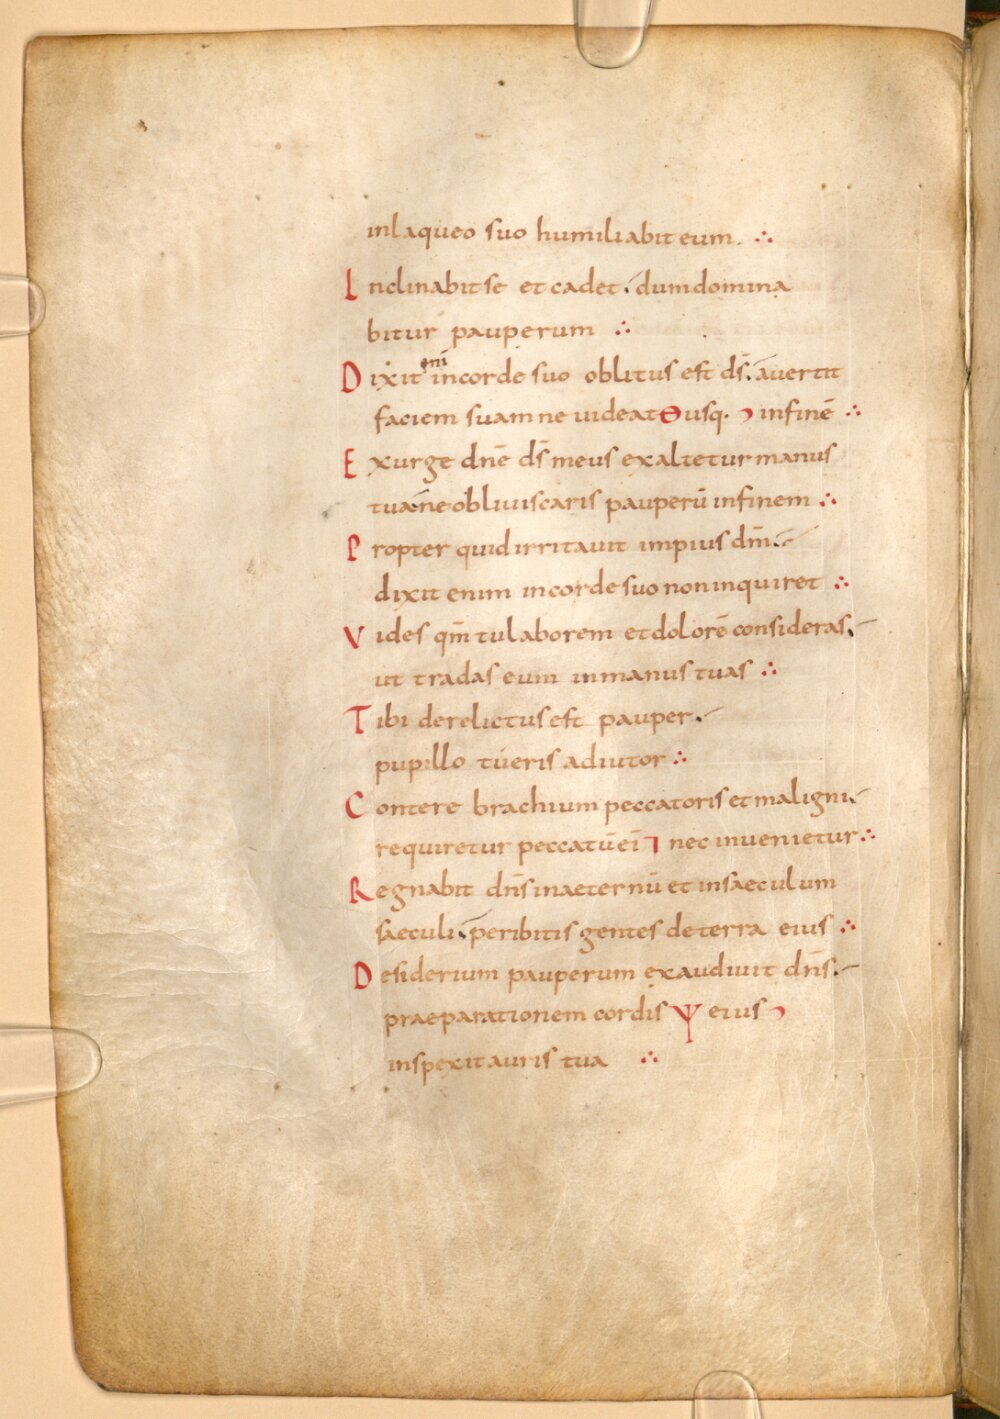 inlaqueo suo humiliabit eum.
Inclinabit se et cadet. dum domina
bitur pauperum
enī
Dixit incorde suo oblitus est dS̄. auertit
faciem suam ne uideat usq. infinē
Exurge dn̄e dS̄ meus exaltetur manus
tua. ne obliuiscaris pauperū infinem
Propter quid irritauit impius dm̄.
dixit enim incorde suo non inquiret
Vides qm̄ tu laborem et dolorē consideras.
ut tradas eum inmanus tuas
Tibi derelictus est pauper.
pupillo tu eris adiutor
Contere brachium peccatoris et maligni.
requiretur peccatū ei nec inuenietur
Regnabit dn̄s inaeternū et insaeculum
saeculi. peribitis gentes deterra eius
Desiderium pauperum exaudiuit dn̄s.
praeparationem cordis eius
inspexit auris tua